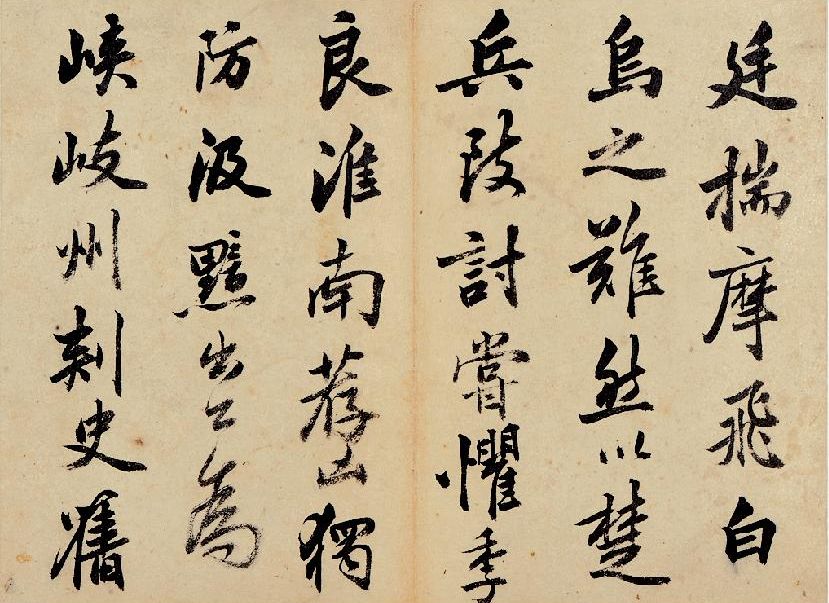 廷揣摩飛白
烏之難然以楚
兵致討嘗懼季
良淮南荐凶獨
防汲黯出公為
峽岐州刺史